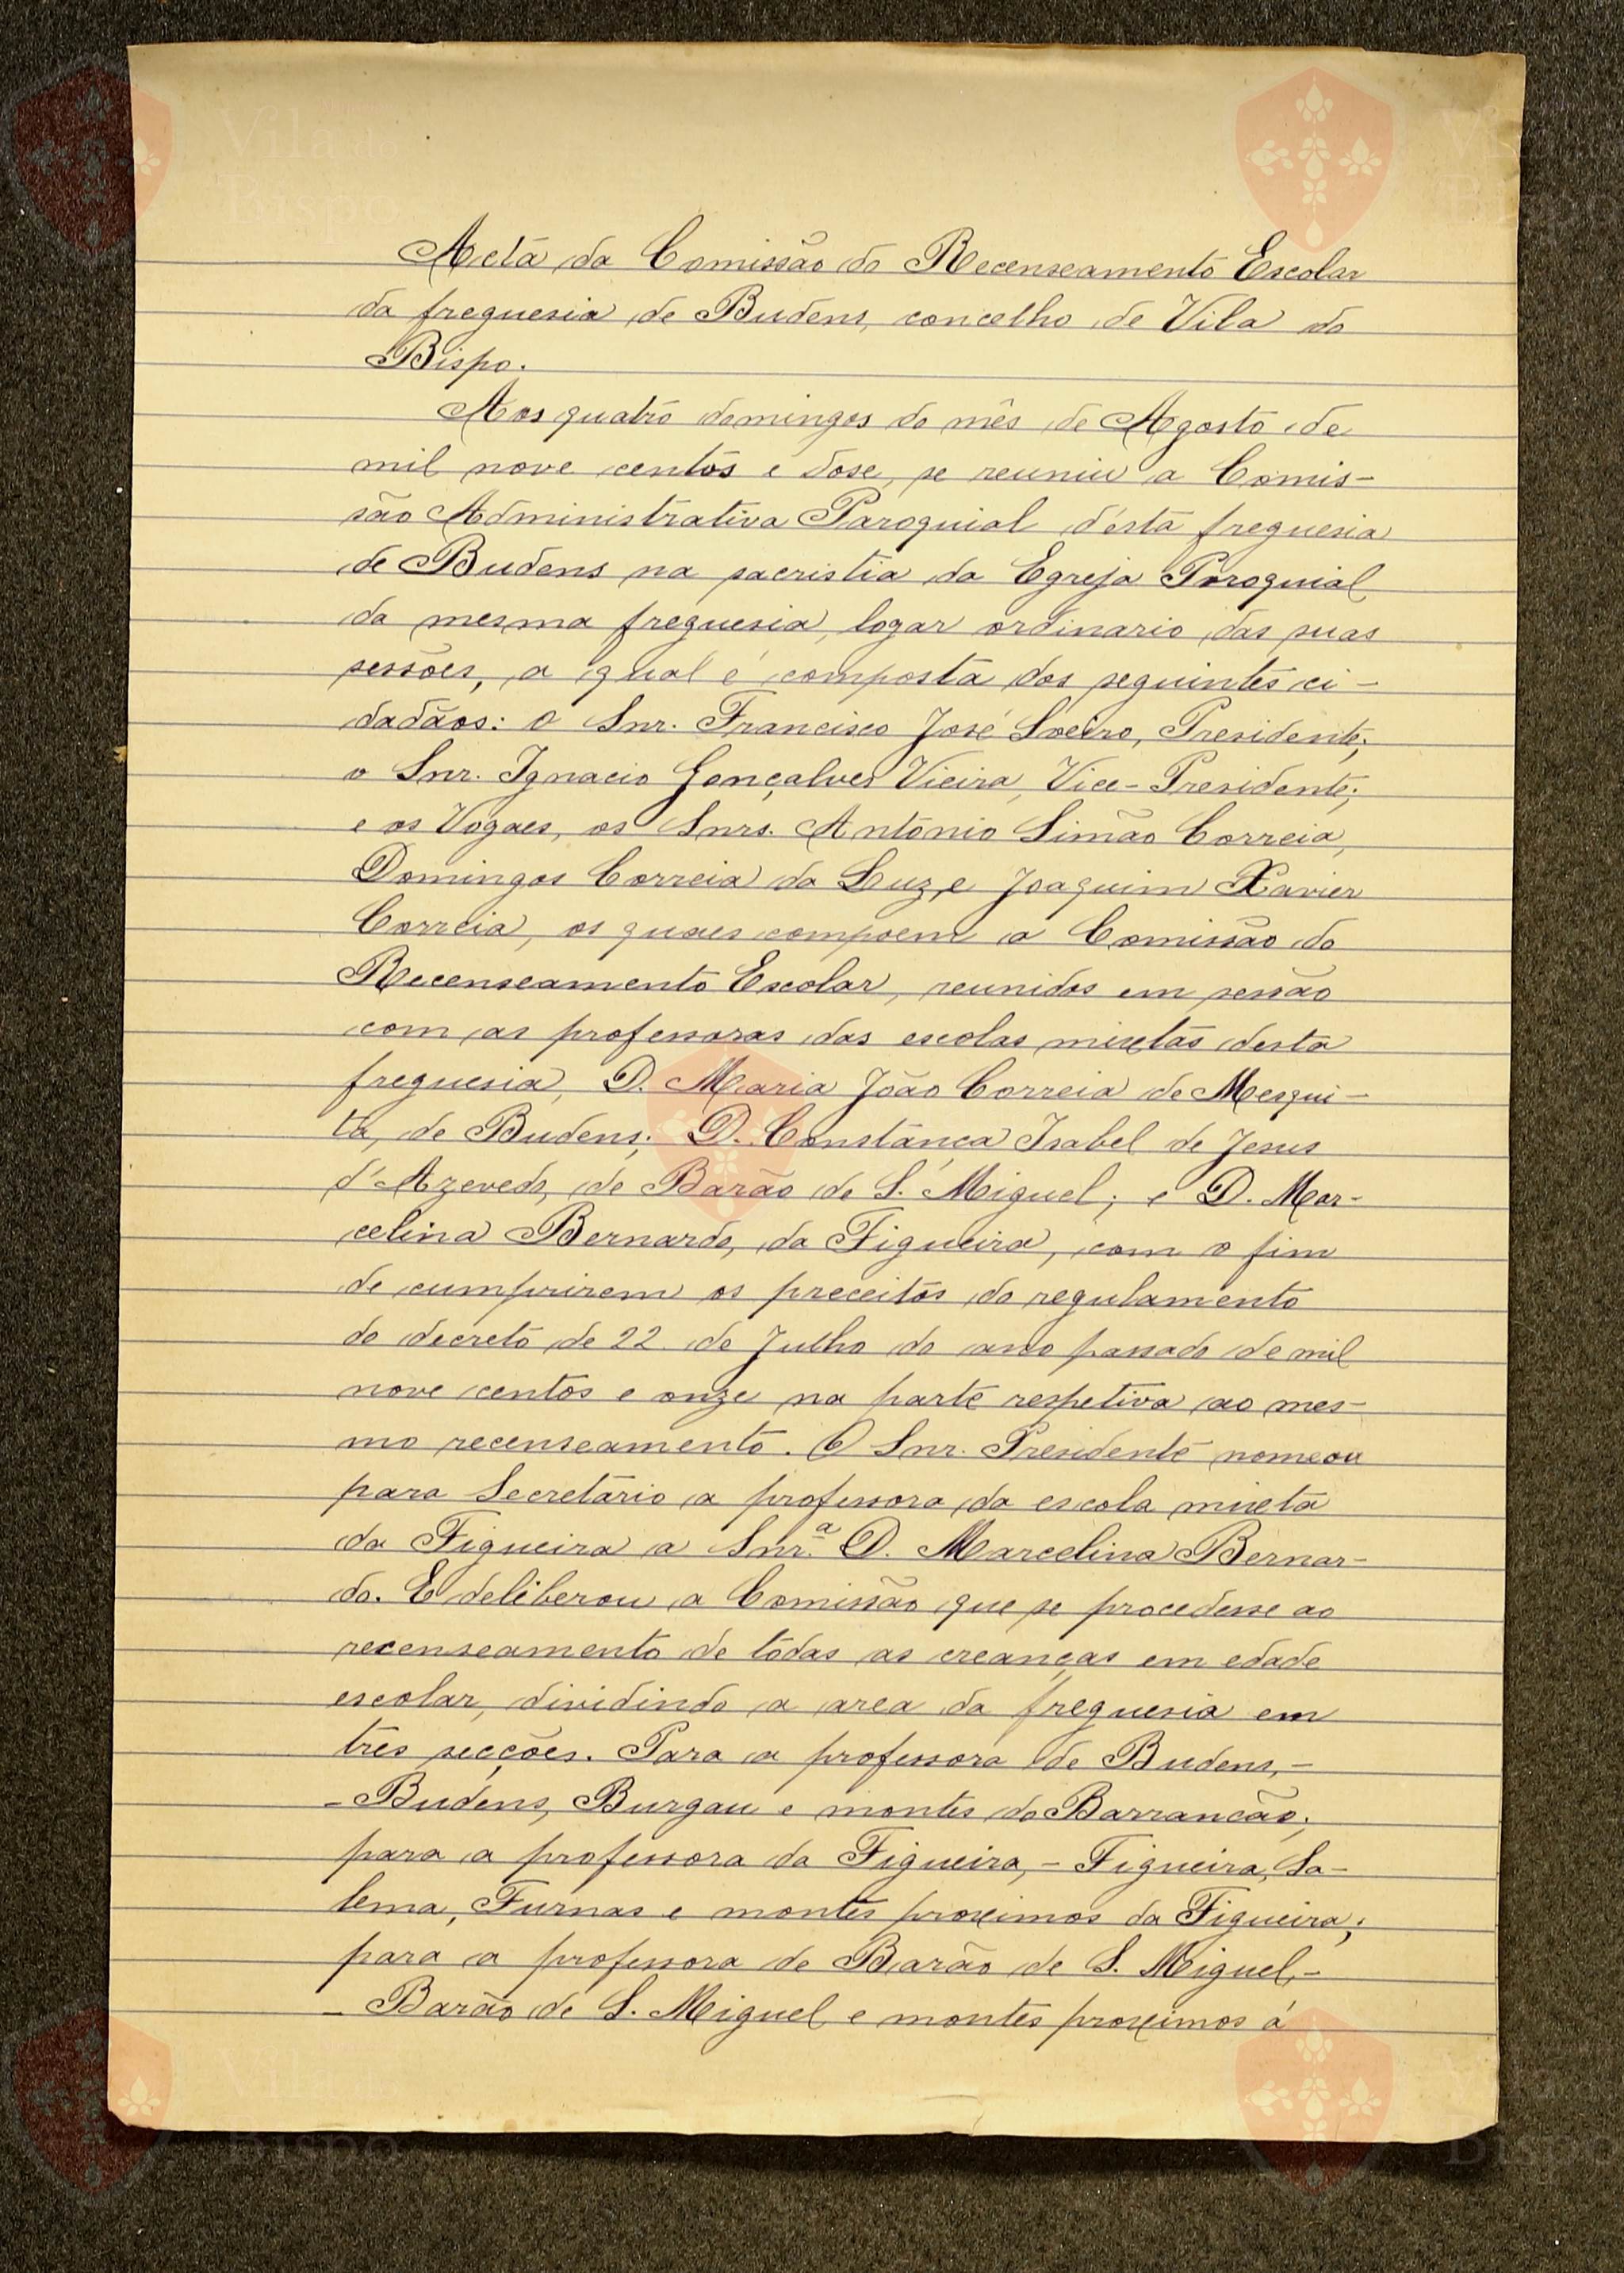 Acta da Comissão do Recenseamento Escolar
da freguesia de Budens, concelho de Vila do
Bispo.
Aos quatro domingos do mês de Agosto de
mil nove centos e dose, se reuniu a Comis-
são Administrativa Paroquial d'esta freguesia
de Budens na sacristia da Egreja Paroquial
da mesma freguesia, logar ordinario das suas
sessões, a qual é composta dos seguintes ci-
dadãos: o Snr. Francisco José Soeiro, Presidente;
o Snr. Ignacio Gonçalves Vieira, Vice-Presidente;
e os Vogaes, os Snrs. Antonio Simão Correia,
Domingos Correia da Luz, e Joaquim Xavier
Correia, os quaes compoem a Comissão do
Recenseamento Escolar, reunidos em sessão
com as professoras das escolas mixtas desta
freguesia, D. Maria João Correia de Mesqui-
ta, de Budens; D. Constança Isabel de Jesus
d'Azevedo, de Barão de S. Miguel; e D. Mar-
celina Bernardo, da Figueira, com o fim
de cumprirem os preceitos do regulamento
do decreto de 22 de Julho do ano passado de mil
nove centos e onze na parte respetiva ao mes-
mo recenseamento. O Snr. Presidente nomeou
para Secretario a professora da escola mixta
da Figueira a Snr.ª D. Marcelina Bernar-
do. E deliberou a Comissão que se procedesse ao
recenseamento de tôdas as creanças em edade
escolar, dividindo a area da freguesia em
três secções. Para a professora de Budens,-
-Budens, Burgau e montes do Barrancão;
para a professora da Figueira,- Figueira, Sa-
lema, Furnas e montes proximos da Figueira;
para a professora de Barão de S. Miguel,-
- Barão de S. Miguel e montes proximos á
Vila do
Bispo